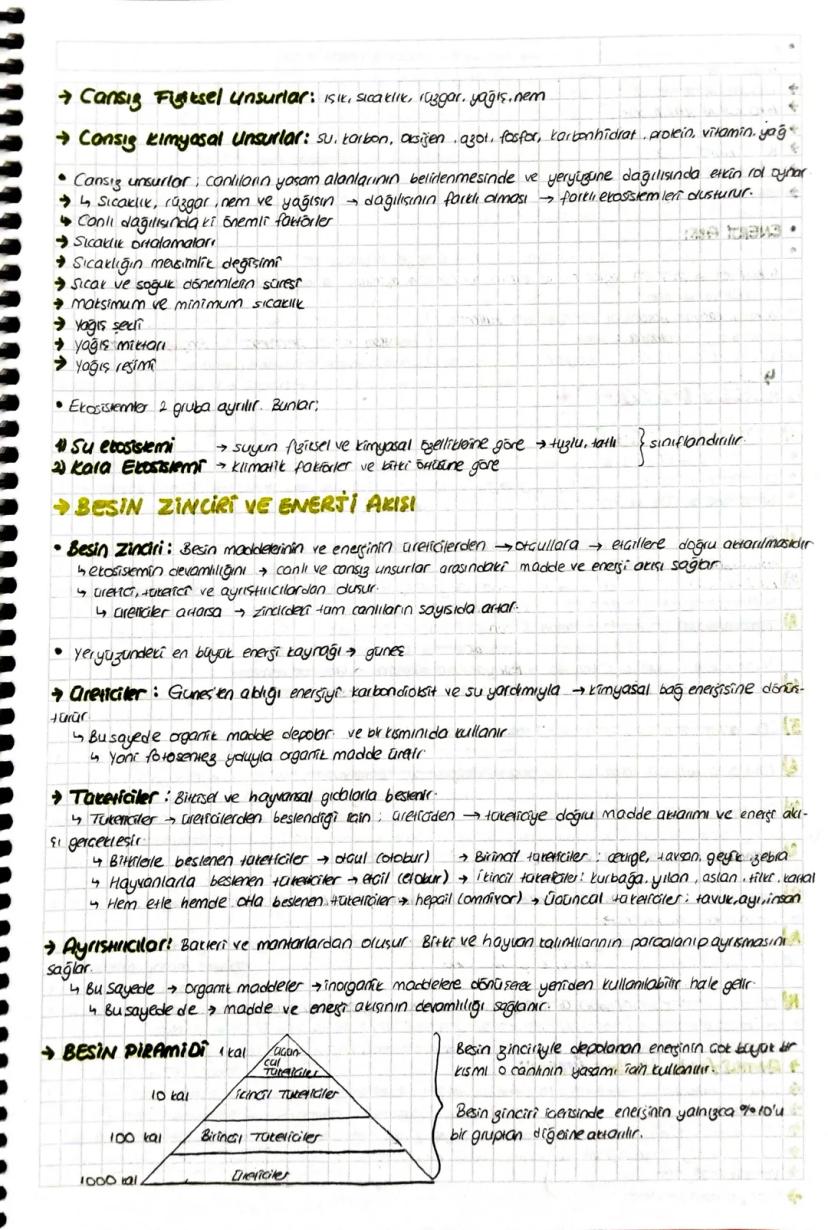 → Cansız Fiziksel Unsurlar: ışık, sıcaklık, rüzgar, yağış, nem
→ Cansız Kimyasal Unsurlar: su, karbon, oksijen, azot, fosfor, karbonhidrat, protein, vitamin, yağ
• Cansız unsurlar; canlıların yaşam alanlarının belirlenmesinde ve yeryüzüne dağılışında etkin rol oynar
→ ↳ Sıcaklık, rüzgar, nem ve yağışın → dağılışının farklı olması → farklı ekosistemleri oluşturur.
↳ Canlı dağılışındaki önemli faktörler
→ Sıcaklık ortalamaları
→ Sıcaklığın mevsimlik değişimi
→ Sıcak ve soğuk dönemlerin süresi
→ maksimum ve minimum sıcaklık
→ Yağış şekli
→ Yağış miktarı
→ Yağış rejimi
• Ekosistemler 2 gruba ayrılır. Bunlar;
1) Su ekosistemi → suyun fiziksel ve kimyasal özelliklerine göre → tuzlu, tatlı } sınıflandırılır.
2) Kara Ekosistemi → klimatik faktörler ve bitki örtüsüne göre
→ BESİN ZİNCİRİ VE ENERJİ AKIŞI
• Besin Zinciri: Besin maddelerinin ve enerjinin üreticilerden → otçullara → etçillere doğru aktarılmasıdır
↳ ekosistemin devamlılığını → canlı ve cansız unsurlar arasındaki madde ve enerji akışı sağlar.
↳ üretici, tüketici ve ayrıştırıcılardan oluşur.
↳ üreticiler artarsa → zincirdeki tüm canlıların sayısıda artar.
• Yeryüzündeki en büyük enerji kaynağı → güneş
→ Üreticiler: Güneş'ten aldığı enerjiyi karbondioksit ve su yardımıyla → kimyasal bağ enerjisine dönüş-
türür.
↳ Bu sayede organik madde depolar ve bir kısmınıda kullanır
↳ Yani fotosentez yoluyla organik madde üretir.
→ Tüketiciler: Bitkisel ve hayvansal gıdalarla beslenir.
↳ Tüketiciler → üreticilerden beslendiği için; üreticiden → tüketiciye doğru madde aktarımı ve enerji akı-
şı gerçekleşir.
↳ Bitkilerle beslenen tüketiciler → otçul (otobur) → Birincil tüketiciler: çekirge, tavşan, geyik, zebra
↳ Hayvanlarla beslenen tüketiciler → etçil (etobur) → ikincil tüketiciler: kurbağa, yılan, aslan, tilki, kartal
↳ Hem etle hemde otla beslenen tüketiciler → hepçil (omnivor) → Üçüncül tüketiciler: tavuk, ayı, insan
→ Ayrıştırıcılar: Bakteri ve mantarlardan oluşur. Bitki ve hayvan kalıntılarının parçalanıp ayrışmasını
sağlar.
↳ Bu sayede → organik maddeler → inorganik maddelere dönüşerek yeniden kullanılabilir hale gelir.
↳ Bu sayede de → madde ve enerji akışının devamlılığı sağlanır.
→ BESİN PİRAMİDİ 1 kal Üçün-
cül
Tüketiciler
10 kal İkincil Tüketiciler
100 kal Birincil Tüketiciler
1000 kal Üreticiler
Besin zinciriyle depolanan enerjinin çok büyük bir
kısmı o canlının yaşamı için kullanılır.
Besin zinciri içerisinde enerjinin yalnızca %10'u
bir gruptan diğerine aktarılır.